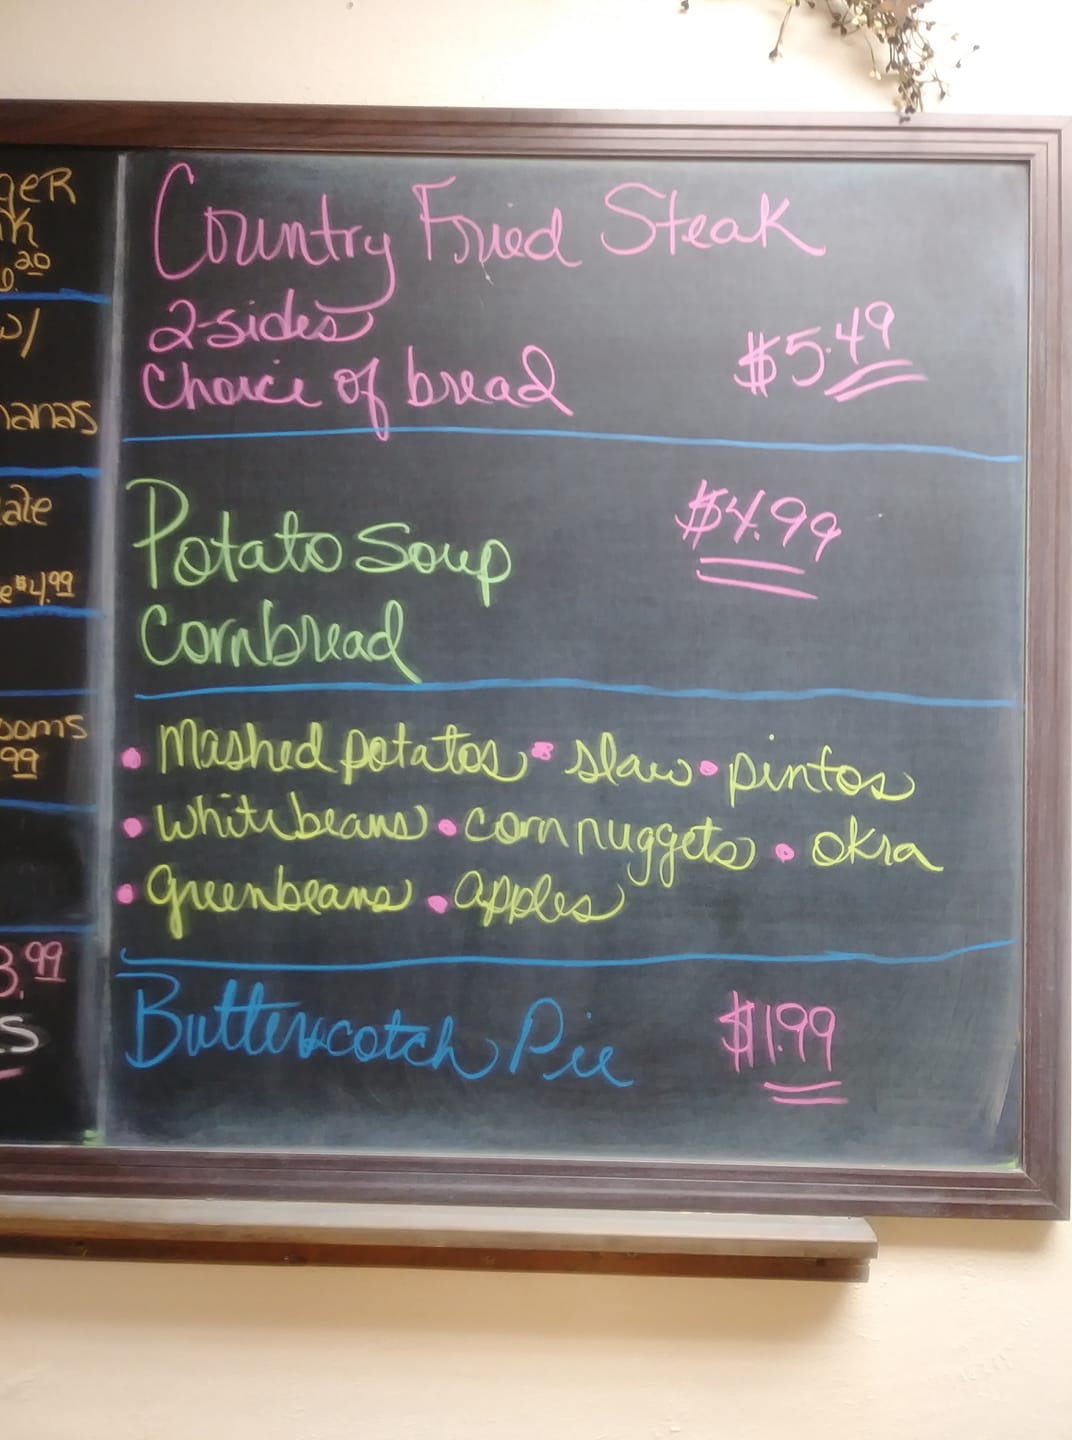 geR
20
w/
nanas
ate
e $4.99
ooms
99
3.99
s
Country Fried Steak
2-sides
Choice of bread $5.49
Potato Soup $4.99
Cornbread
• Mashed potatos • slaw • pintos
• white beans • corn nuggets • okra
• greenbeans • apples
Butterscotch Pie $1.99